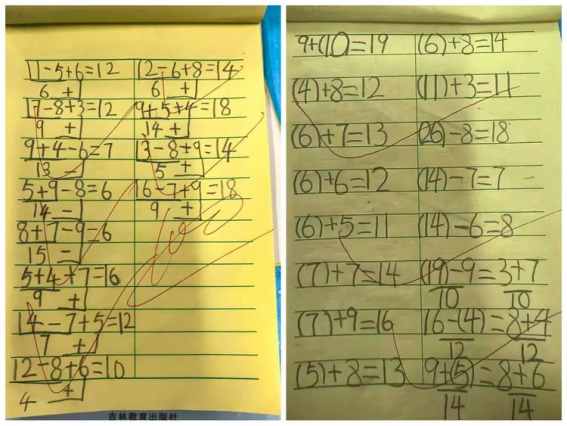 11-5+6=12 12-6+8=14
6 + 6 +
17-8+3=12 9+5+4=18
9 + 14 +
9+4-6=7 13-8+9=14
13 - 5 +
5+9-8=6 16-7+9=18
14 - 9 +
8+7-9=6
15 -
5+4+7=16
9 +
14-7+5=12
7 +
12-8+6=10
4 +
100
吉林教育出版社
9+(10)=19 (6)+8=14
(4)+8=12 (11)+3=11
(6)+7=13 (26)-8=18
(6)+6=12 (14)-7=7
(6)+5=11 (14)-6=8
(7)+7=14 (19)-9=3+7
10 10
(7)+9=16 16-(4)=8+4
12 12
(5)+8=13 9+(5)=8+6
14 14